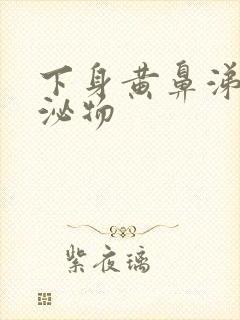 下身黄鼻涕
泌物
紫夜璃